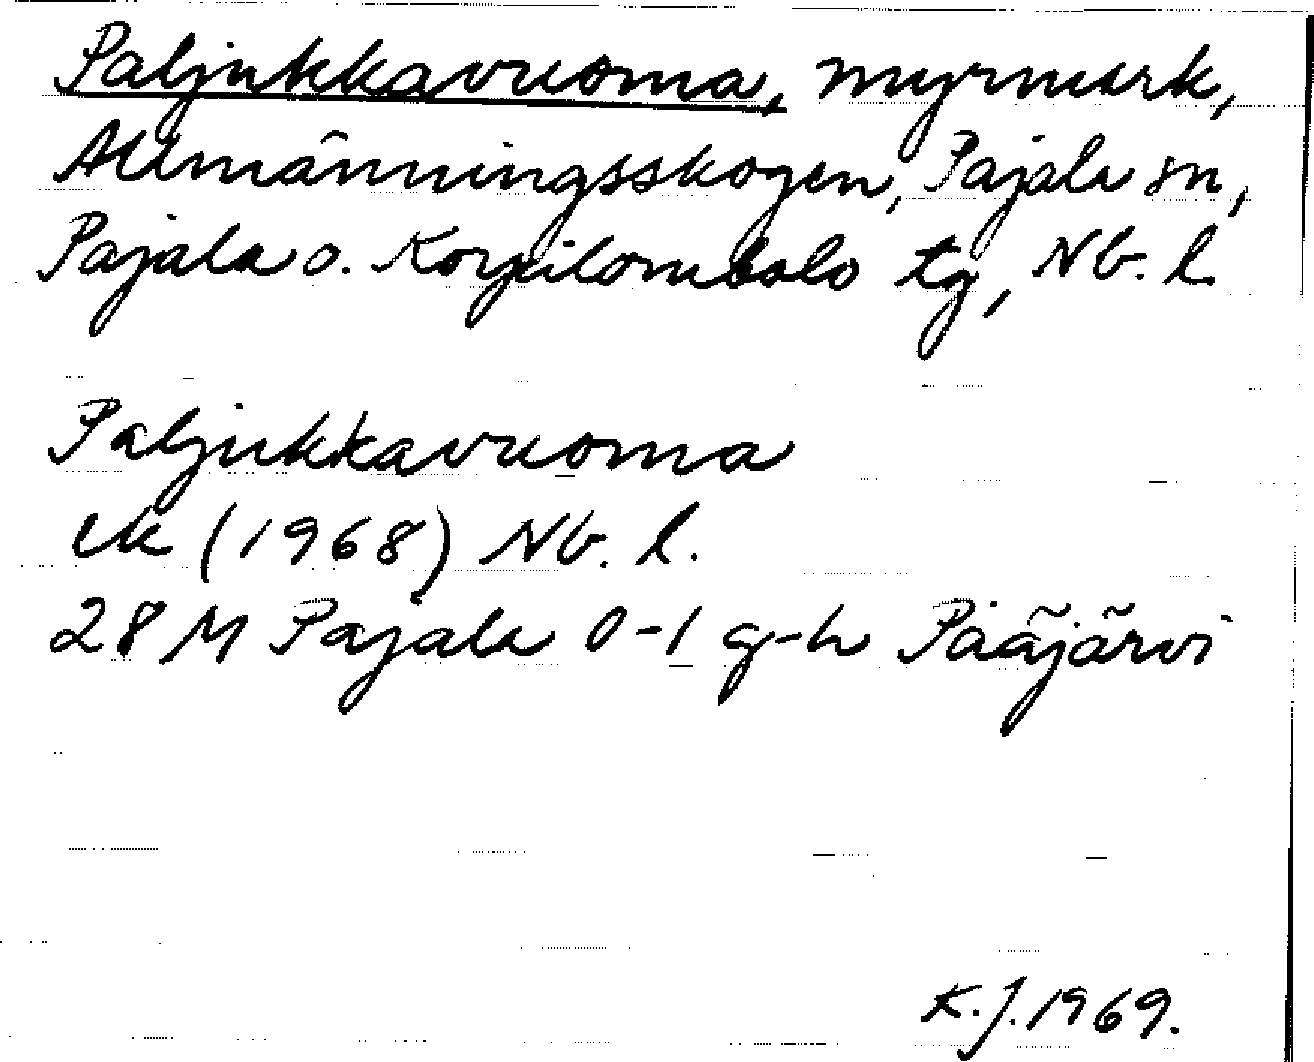 Paljukkavuoma, myrmark,
Allmänningsskogen, Pajala sn,
Pajala o. Korpilombolo tg, Nb. l.
Paljukkavuoma
ek (1968) Nb. l.
28 M Pajala 0-1 g-h Pääjärvi
K.J. 1969.